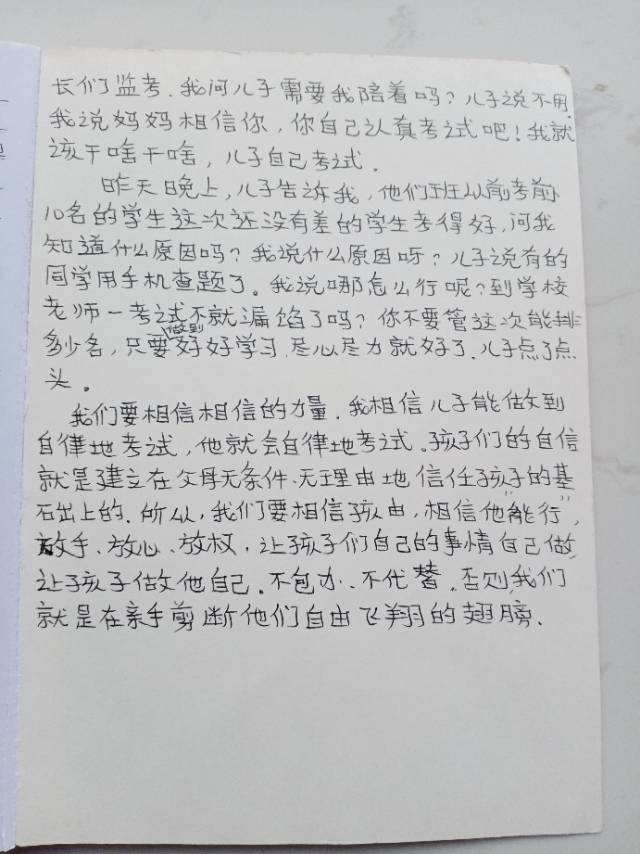 长们监考.我问儿子需要我陪着吗?儿子说不用.
我说妈妈相信你,你自己认真考试吧!我就
该干啥干啥,儿子自己考试.
昨天晚上,儿子告诉我,他们班从前考前
10名的学生这次还没有差的学生考得好,问我
知道什么原因吗?我说什么原因呀?儿子说有的
同学用手机查题了。我说哪怎么行呢?到学校
老师一考试不就漏馅了吗?你不要管这次能排
多少名,只要做到好好学习.尽心尽力就好了.儿子点了点
头。
我们要相信相信的力量.我相信儿子能做到
自律地考试,他就会自律地考试.孩子们的自信
就是建立在父母无条件、无理由地信任孩子的基
石出上的.所以,我们要相信孩由,相信他"能行",
放手、放心、放权,让孩子们自己的事情自己做,
让孩子做他自己.不包办、不代替.否则,我们
就是在亲手剪断他们自由飞翔的翅膀.